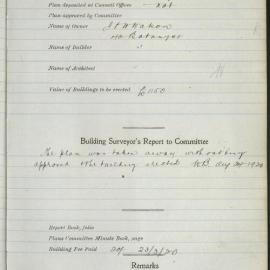 Plan deposited at Council Offices — not
Plan approved by Committee
Name of Owner St W Bakon
Name of Builder "
Name of Architect "
Value of Buildings to be erected £1150
Building Surveyor's Report to Committee
The plan was taken away without my
approval the building erected
Report Book, folio
Plans Committee Minute Book, page
Building Fee Paid 20/- 23/3/20
Remarks